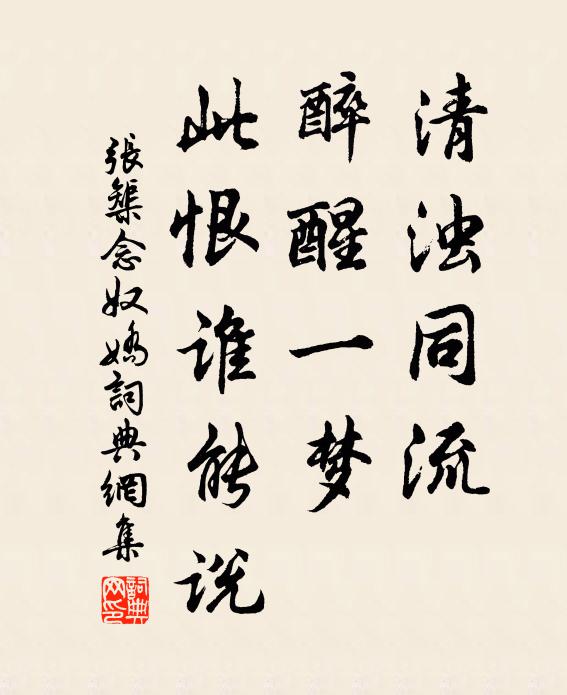 清浊同流
醉醒一梦
此恨谁能说
張榘念奴嬌詞典網集
詞典
网印